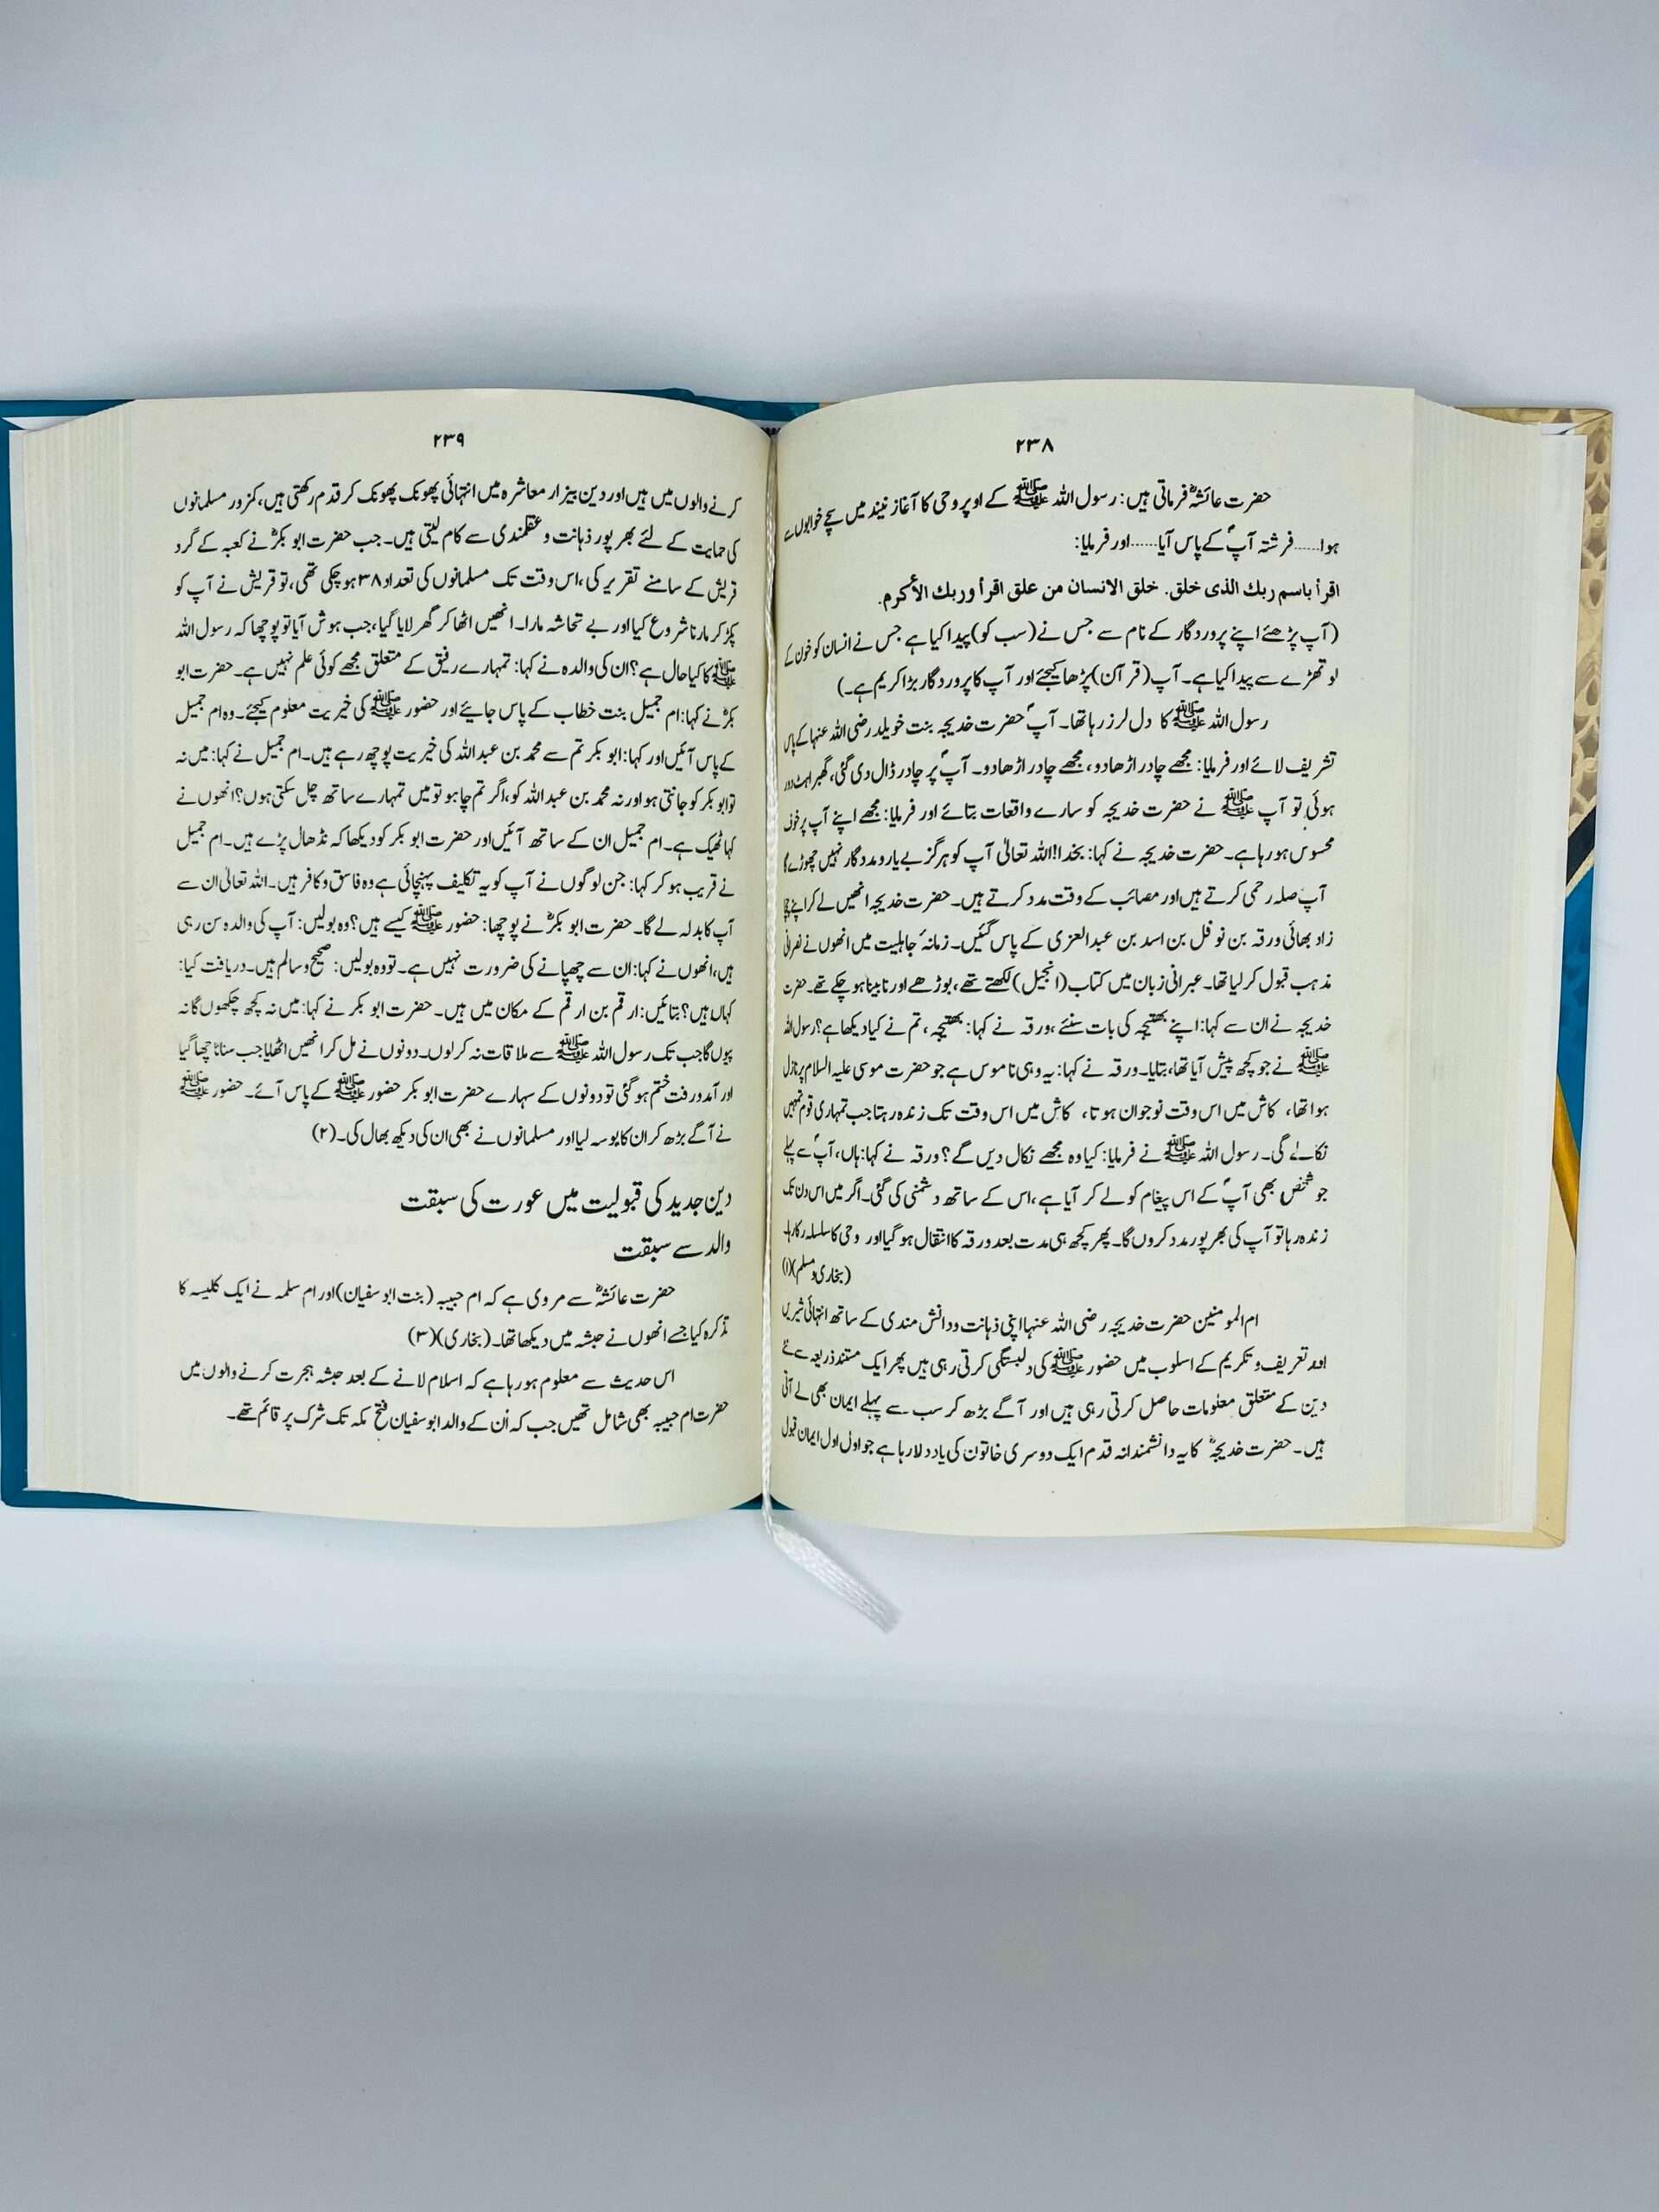 ۲۳۸
حضرت عائشہؓ فرماتی ہیں: رسول اللہ ﷺ کے اوپر وحی کا آغاز نیند میں سچے خوابوں سے
ہوا......فرشتہ آپؐ کے پاس آیا......اور فرمایا:
اقرأ باسم ربك الذی خلق. خلق الانسان من علق اقرأ وربك الأکرم.
(آپ پڑھئے اپنے پروردگار کے نام سے جس نے (سب کو) پیدا کیا ہے جس نے انسان کو خون کے
لوتھڑے سے پیدا کیا ہے۔ آپ (قرآن) پڑھا کیجئے اور آپ کا پروردگار بڑا کریم ہے۔)
رسول اللہ ﷺ کا دل لرز رہا تھا۔ آپؐ حضرت خدیجہ بنت خویلد رضی اللہ عنہا کے پاس
تشریف لائے اور فرمایا: مجھے چادر اڑھا دو، مجھے چادر اڑھا دو۔ آپؐ پر چادر ڈال دی گئی، گھبراہٹ دور
ہوئی تو آپ ﷺ نے حضرت خدیجہ کو سارے واقعات بتائے اور فرمایا: مجھے اپنے آپ پر خوف
محسوس ہو رہا ہے۔ حضرت خدیجہ نے کہا: بخدا! اللہ تعالیٰ آپ کو ہرگز بے یار و مددگار نہیں چھوڑے گا
آپ صلہ رحمی کرتے ہیں اور مصائب کے وقت مدد کرتے ہیں۔ حضرت خدیجہ انھیں لے کر اپنے چچا
زاد بھائی ورقہ بن نوفل بن اسد بن عبدالعزی کے پاس گئیں۔ زمانۂ جاہلیت میں انھوں نے نصرانی
مذہب قبول کر لیا تھا۔ عبرانی زبان میں کتاب (انجیل) لکھتے تھے، بوڑھے اور نابینا ہو چکے تھے۔ حضرت
خدیجہ نے ان سے کہا: اپنے بھتیجہ کی بات سنئے، ورقہ نے کہا: بھتیجہ، تم نے کیا دیکھا ہے؟ رسول اللہ
ﷺ نے جو کچھ پیش آیا تھا، بتایا۔ ورقہ نے کہا: یہ وہی ناموس ہے جو حضرت موسی علیہ السلام پر نازل
ہوا تھا، کاش میں اس وقت نوجوان ہوتا، کاش میں اس وقت تک زندہ رہتا جب تمہاری قوم تمہیں
نکالے گی۔ رسول اللہ ﷺ نے فرمایا: کیا وہ مجھے نکال دیں گے؟ ورقہ نے کہا: ہاں، آپؐ سے پہلے
جو شخص بھی آپؐ کے اس پیغام کو لے کر آیا ہے، اس کے ساتھ دشمنی کی گئی۔ اگر میں اس دن تک
زندہ رہا تو آپ کی بھرپور مدد کروں گا۔ پھر کچھ ہی مدت بعد ورقہ کا انتقال ہو گیا اور وحی کا سلسلہ رکا رہا۔
(بخاری و مسلم)(۱)
ام المومنین حضرت خدیجہ رضی اللہ عنہا اپنی ذہانت و دانش مندی کے ساتھ انتہائی شیریں
اور تعریف و تکریم کے اسلوب میں حضور ﷺ کی دلبستگی کرتی رہی ہیں پھر ایک مستند ذریعہ سے نئے
دین کے متعلق معلومات حاصل کرتی رہی ہیں اور آگے بڑھ کر سب سے پہلے ایمان بھی لے آئی
ہیں۔ حضرت خدیجہؓ کا یہ دانشمندانہ قدم ایک دوسری خاتون کی یاد دلا رہا ہے جو اول اول ایمان قبول
۲۳۹
کرنے والوں میں ہیں اور دین بیزار معاشرہ میں انتہائی پھونک پھونک کر قدم رکھتی ہیں، کمزور مسلمانوں
کی حمایت کے لئے بھرپور ذہانت و عقلمندی سے کام لیتی ہیں۔ جب حضرت ابوبکرؓ نے کعبہ کے گرد
قریش کے سامنے تقریر کی، اس وقت تک مسلمانوں کی تعداد ۳۸ ہو چکی تھی، تو قریش نے آپ کو
پکڑ کر مارنا شروع کیا اور بے تحاشہ مارا۔ انھیں اٹھا کر گھر لایا گیا، جب ہوش آیا تو پوچھا کہ رسول اللہ
ﷺ کا کیا حال ہے؟ ان کی والدہ نے کہا: تمہارے رفیق کے متعلق مجھے کوئی علم نہیں ہے۔ حضرت ابو
بکرؓ نے کہا: ام جمیل بنت خطاب کے پاس جائیے اور حضور ﷺ کی خیریت معلوم کیجئے۔ وہ ام جمیل
کے پاس آئیں اور کہا: ابوبکر تم سے محمد بن عبداللہ کی خیریت پوچھ رہے ہیں۔ ام جمیل نے کہا: میں نہ
تو ابوبکر کو جانتی ہو اور نہ محمد بن عبداللہ کو، اگر تم چاہو تو میں تمہارے ساتھ چل سکتی ہوں؟ انھوں نے
کہا ٹھیک ہے۔ ام جمیل ان کے ساتھ آئیں اور حضرت ابوبکر کو دیکھا کہ نڈھال پڑے ہیں۔ ام جمیل
نے قریب ہو کر کہا: جن لوگوں نے آپ کو یہ تکلیف پہنچائی ہے وہ فاسق و کافر ہیں۔ اللہ تعالیٰ ان سے
آپ کا بدلہ لے گا۔ حضرت ابوبکرؓ نے پوچھا: حضور ﷺ کیسے ہیں؟ وہ بولیں: آپ کی والدہ سن رہی
ہیں، انھوں نے کہا: ان سے چھپانے کی ضرورت نہیں ہے۔ تو وہ بولیں: صحیح و سالم ہیں۔ دریافت کیا:
کہاں ہیں؟ بتائیں: ارقم بن ارقم کے مکان میں ہیں۔ حضرت ابوبکر نے کہا: میں نہ کچھ چکھوں گا نہ
پیوں گا جب تک رسول اللہ ﷺ سے ملاقات نہ کر لوں۔ دونوں نے مل کر انھیں اٹھایا جب سناٹا چھا گیا
اور آمد و رفت ختم ہو گئی تو دونوں کے سہارے حضرت ابوبکر حضور ﷺ کے پاس آئے۔ حضور ﷺ
نے آگے بڑھ کر ان کا بوسہ لیا اور مسلمانوں نے بھی ان کی دیکھ بھال کی۔ (۲)
دین جدید کی قبولیت میں عورت کی سبقت
والد سے سبقت
حضرت عائشہؓ سے مروی ہے کہ ام حبیبہ (بنت ابوسفیان) اور ام سلمہ نے ایک کلیسہ کا
تذکرہ کیا جسے انھوں نے حبشہ میں دیکھا تھا۔ (بخاری)(۳)
اس حدیث سے معلوم ہو رہا ہے کہ اسلام لانے کے بعد حبشہ ہجرت کرنے والوں میں
حضرت ام حبیبہ بھی شامل تھیں جب کہ اُن کے والد ابوسفیان فتح مکہ تک شرک پر قائم تھے۔